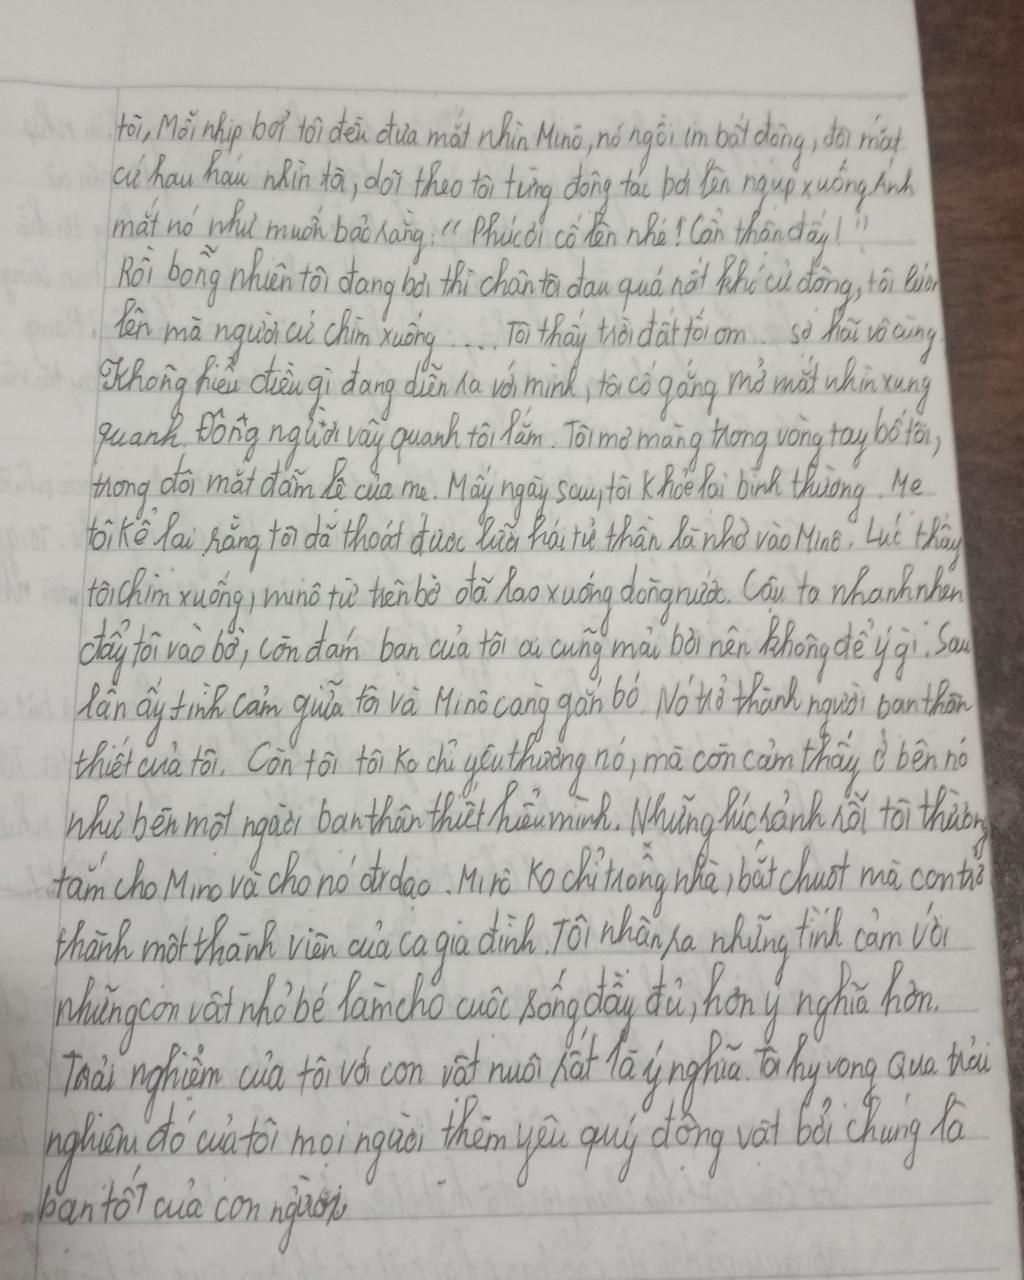 tôi, Mỗi nhịp bơi tôi đều đưa mắt nhìn Minô, nó ngồi im bất động, đôi mắt
cứ hau háu nhìn tôi, dõi theo tôi từng động tác bơi lên ngụp xuống Ánh
mắt nó như muốn bảo rằng: "Phúc ơi cố lên nhé! Cẩn thận đấy!"
Rồi bỗng nhiên tôi đang bơi thì chân tôi đau quá rất khó cử động, tôi
lên mà người cứ chìm xuống .... Tôi thấy trời đất tối om... sợ hãi vô cùng
Không hiểu điều gì đang diễn ra với mình, tôi cố gắng mở mắt nhìn xung
quanh. Đông người vây quanh tôi lắm. Tôi mơ màng trong vòng tay bố tôi,
trong đôi mắt đẫm lệ của mẹ. Mấy ngày sau, tôi khỏe lại bình thường. Mẹ
tôi kể lại rằng tôi đã thoát được lưỡi hái tử thần là nhờ vào Minô. Lúc thấy
tôi chìm xuống, minô từ trên bờ đã lao xuống dòng nước. Cậu ta nhanh nhẹn
đẩy tôi vào bờ, còn đám bạn của tôi ai cũng mải bơi nên không để ý gì. Sau
lần ấy tình cảm giữa tôi và Minô càng gắn bó. Nó trở thành người bạn thân
thiết của tôi. Còn tôi tôi ko chỉ yêu thương nó, mà còn cảm thấy ở bên nó
như bên một người bạn thân thiết hiểu mình. Những lúc rảnh rỗi tôi thường
tắm cho Mino và cho nó đi dạo. Mi nô ko chỉ trông nhà, bắt chuột mà con trở
thành một thành viên của cả gia đình. Tôi nhận ra những tình cảm với
những con vật nhỏ bé làm cho cuộc sống đầy đủ, hơn ý nghĩa hơn.
Trải nghiệm của tôi với con vật nuôi rất là ý nghĩa. Tôi hy vọng qua trải
nghiệm đó của tôi mọi người thêm yêu quý động vật bởi chúng là
bạn tốt của con người